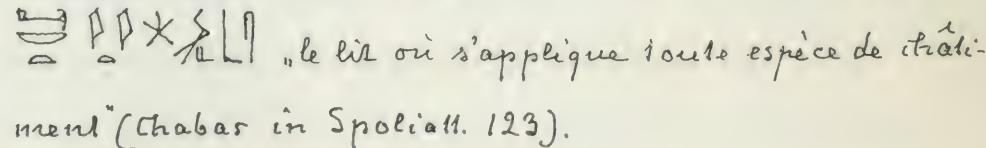 „le lit où s'applique toute espèce de châti-
ment" (Chabas in Spoliatt. 123).